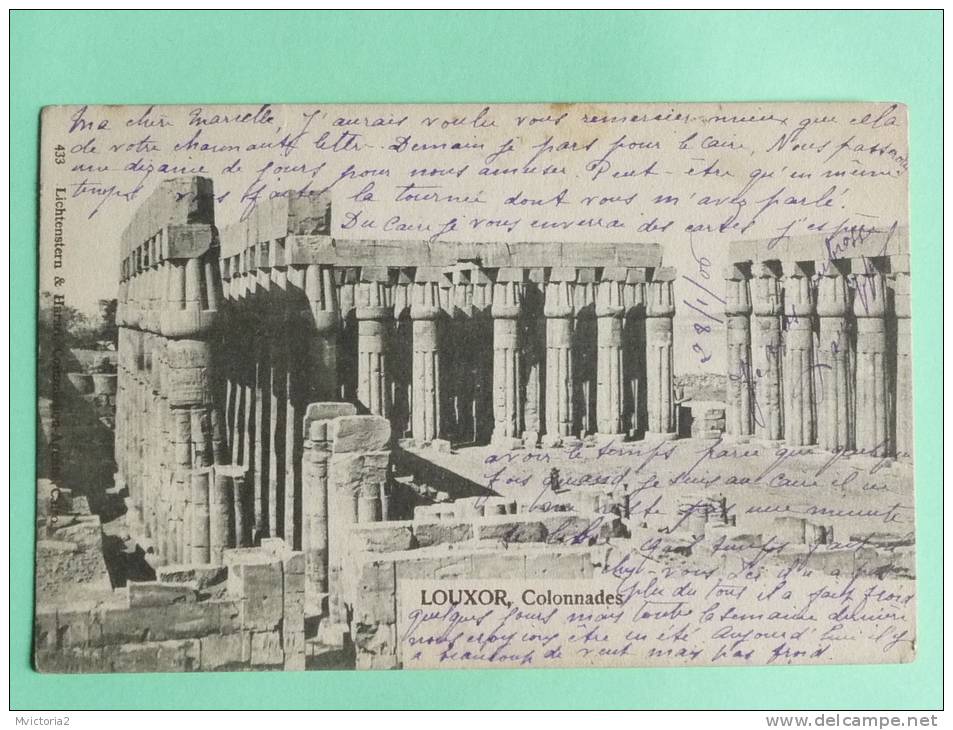 Ma chère Marcelle, J'aurais voulu vous remercier mieux que cela
de votre charmante lettre. Demain je pars pour le Caire, Nous passerons
une dizaine de jours pour nous amuser. Peut-être qu'en même
temps vous faites la tournée dont vous m'avez parlé.
Du Caire je vous enverrai des cartes j'espère
28/1/06
avoir le temps parce que quelque
fois quand je suis au Caire il ne
me reste pas une minute
de libre. Quel temps fait-il
chez-vous Ici il n'a pas
plu du tout il a fait froid
quelques jours mais toute la semaine dernière
nous croyions être en été. Aujourd'hui il y
a beaucoup de vent mais pas froid.
433 Lichtenstern & Cairo
LOUXOR, Colonnades
Mvictoria2
www.delcampe.net